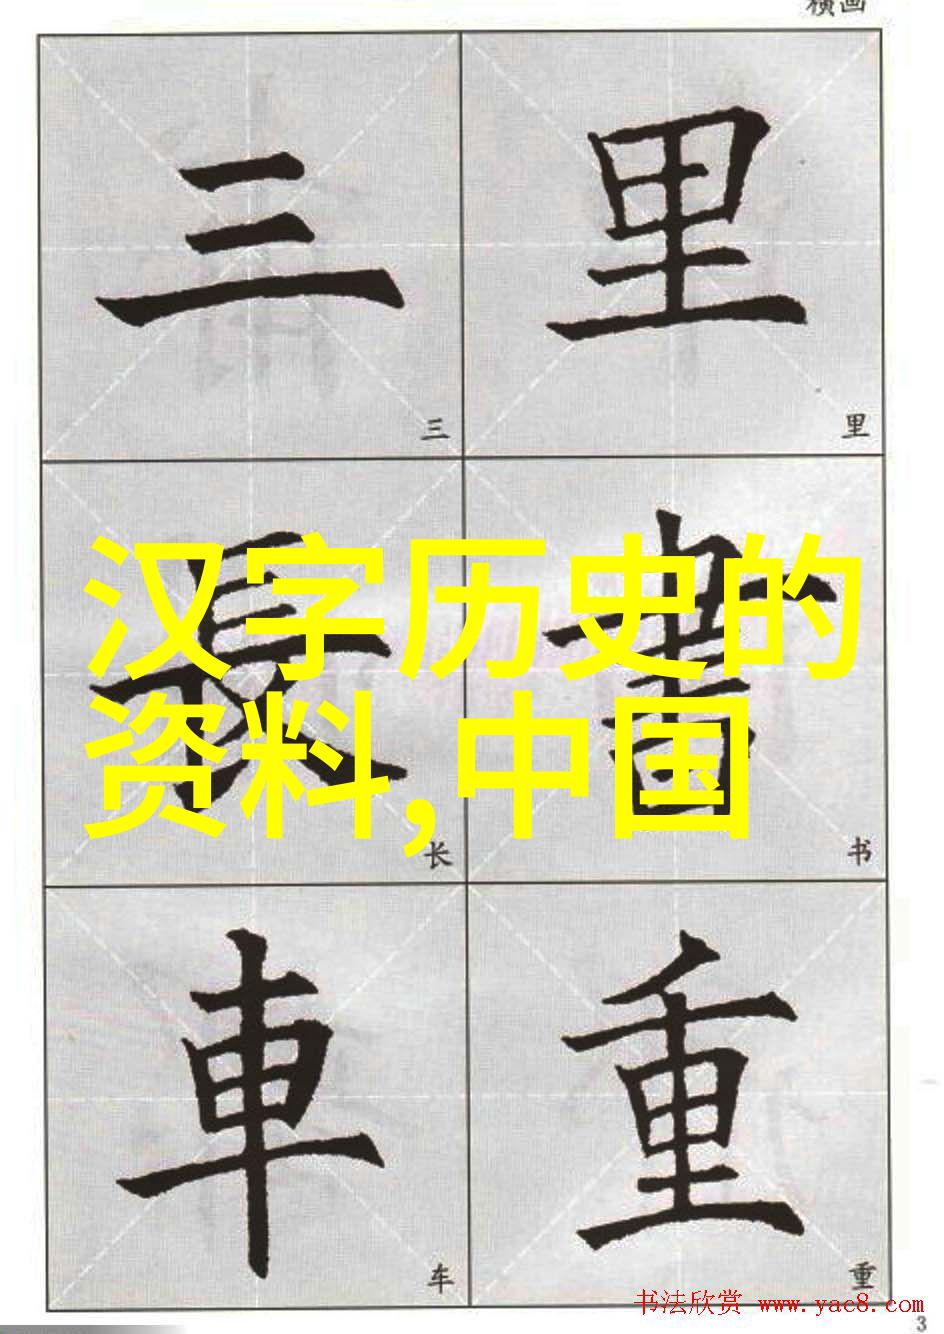 横画
三 里
三 里
汉字历史的
資料,中国
長 書
长 书
車 重
车 重
书法欣赏 www.yac8.com
3